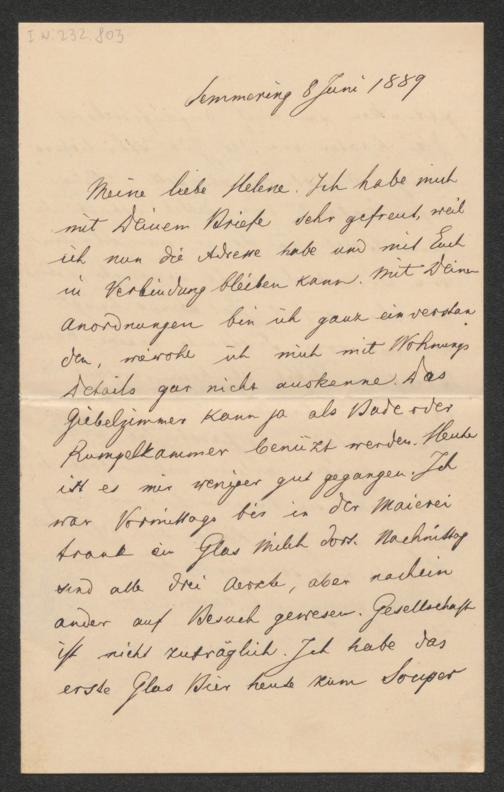 I.N. 232.803
Semmering 8 Juni 1889
Meine liebe Helene. Ich habe mich
mit Deinem Briefe sehr gefreut, weil
ich nun die Adresse habe und mit Euch
in Verbindung bleiben kann. Mit Deinen
Anordnungen bin ich ganz einverstan
den, wiewohl ich mich mit Wohnungs
Details gar nicht auskenne. Das
Giebelzimmer kann ja als Bade oder
Rumpelkammer benützt werden. Heute
ist es mir weniger gut gegangen. Ich
war Vormittags bis in der Maierei
trank ein Glas Milch dort. Nachmittag
sind alle drei Aerzte, aber nachein
ander auf Besuch gewesen. Gesellschaft
ist nicht zuträglich. Ich habe das
erste Glas Bier heute zum Souper